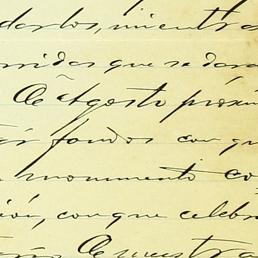 darlos, mientras
rridas que se dará
De Agosto próxi
fondos con qu
monumento co
ión, con que celebr
De nuestra